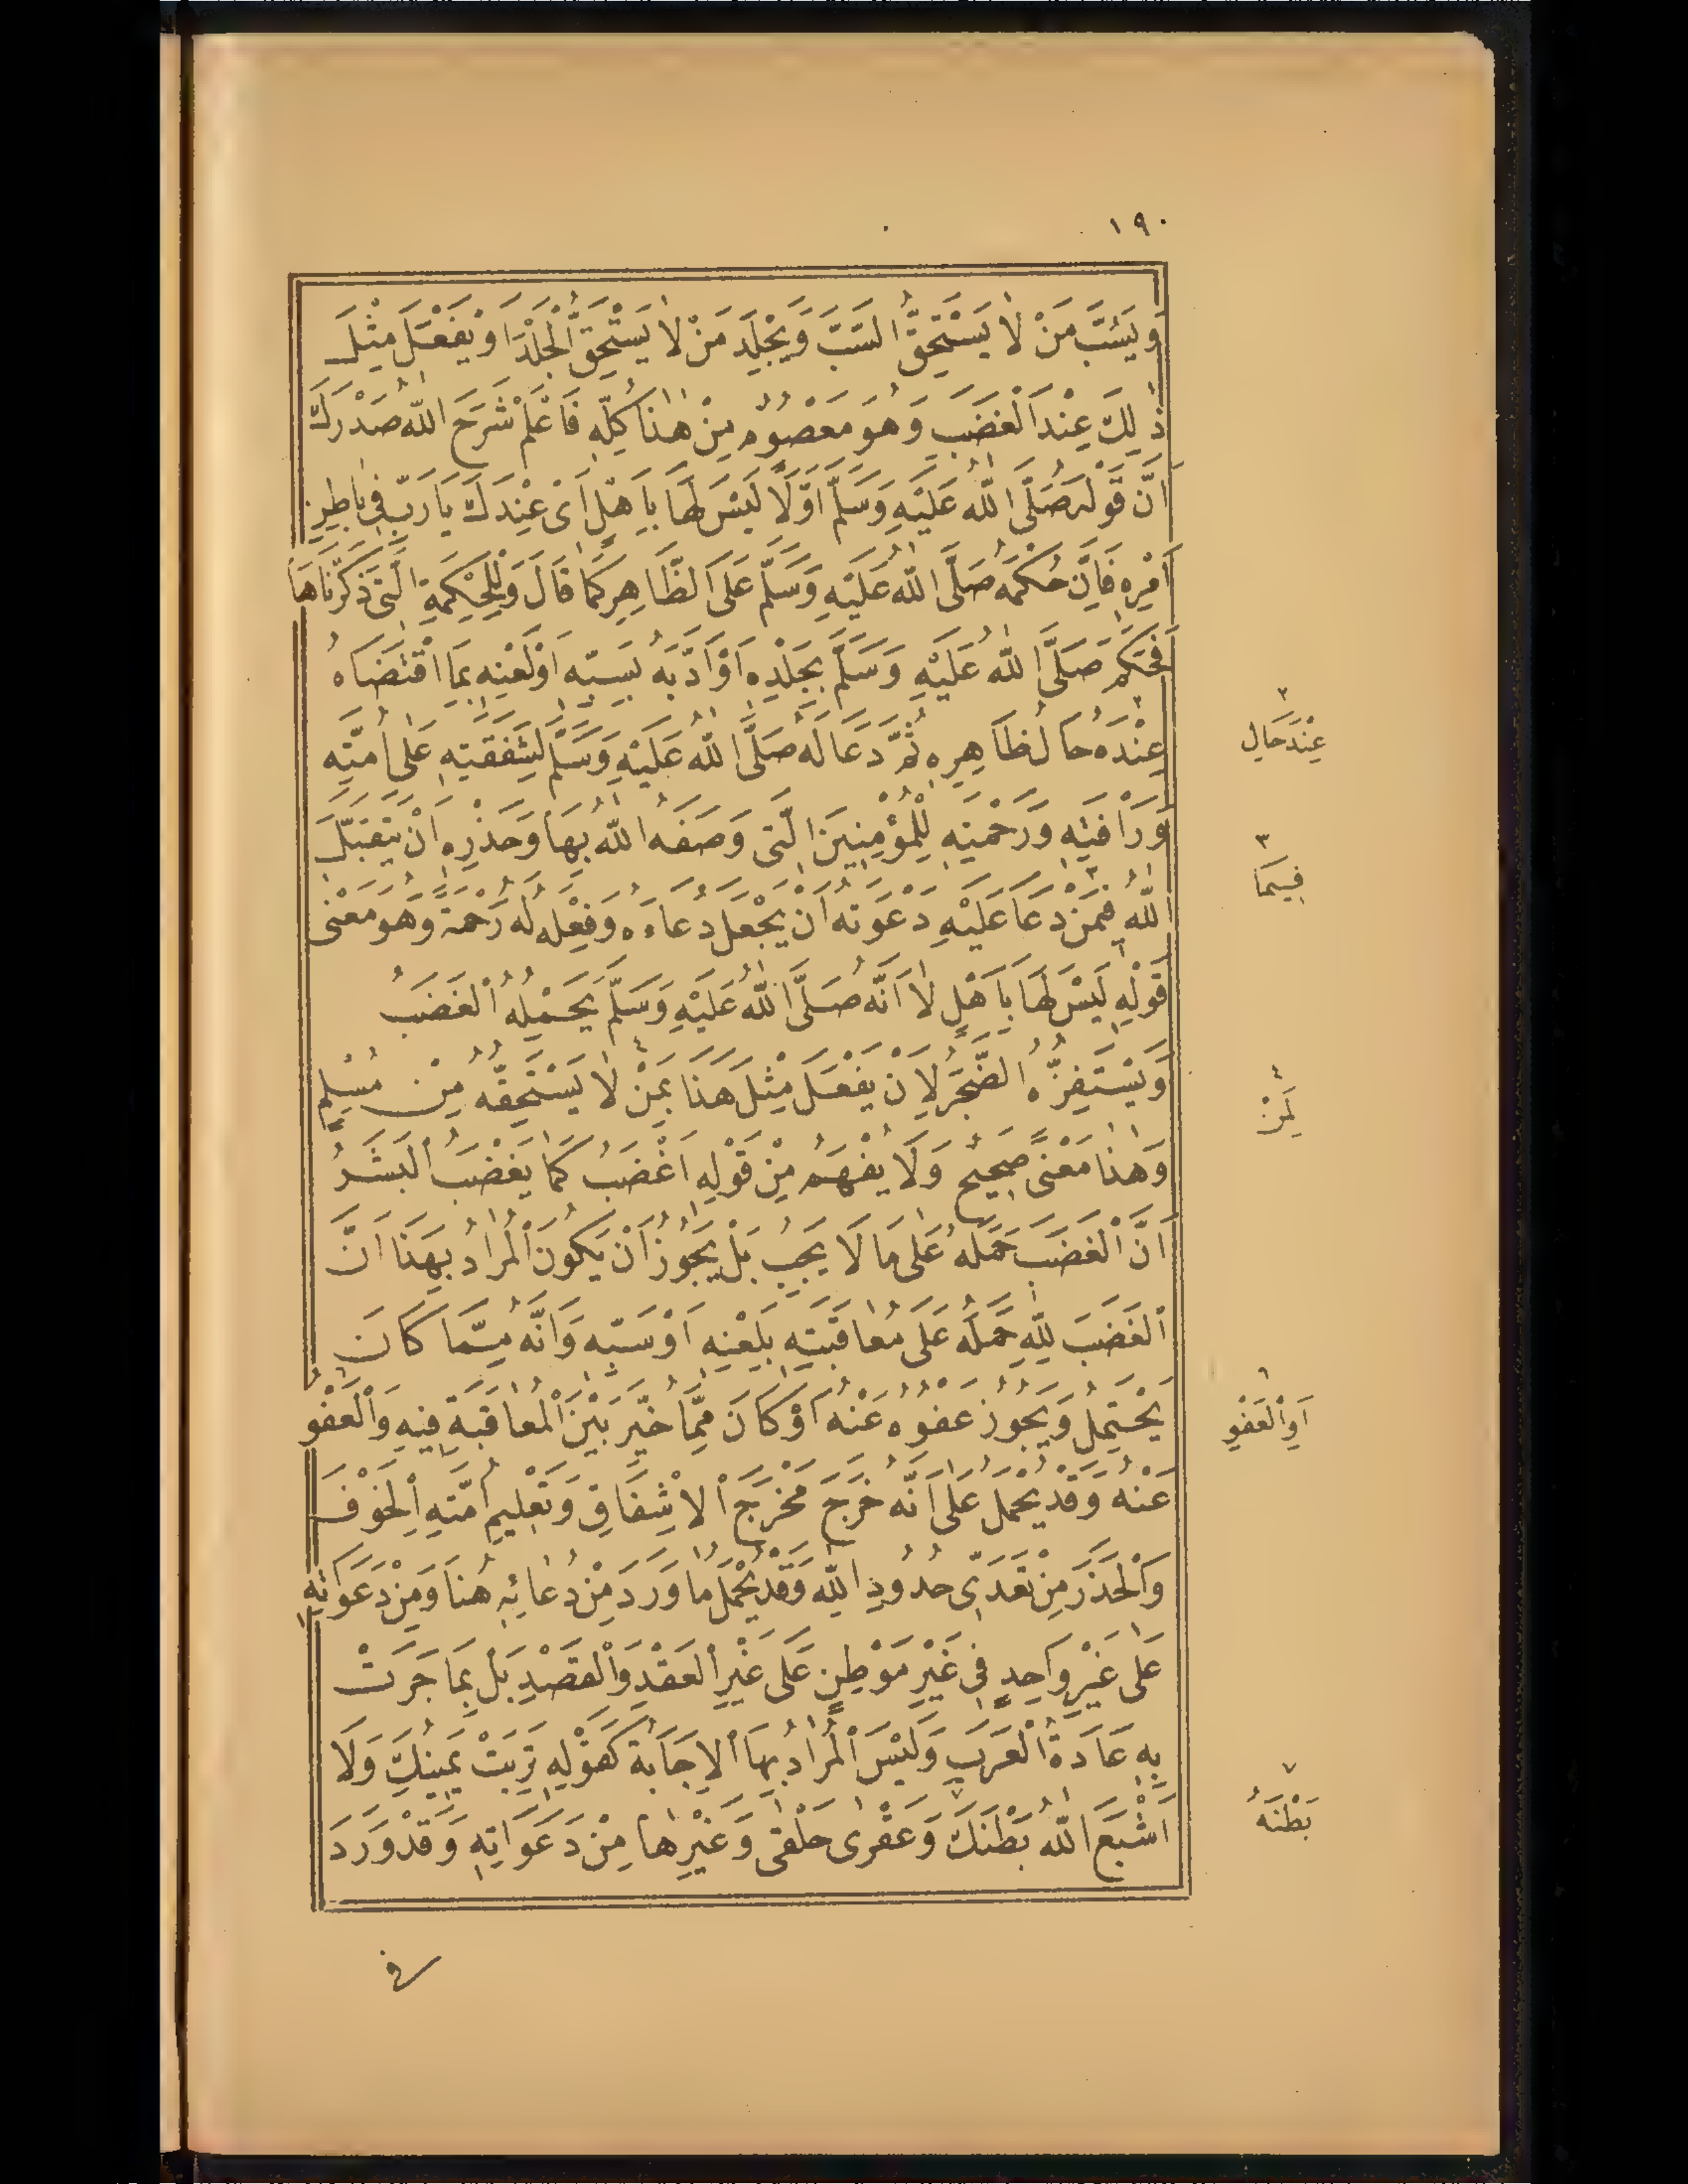 ١٩٠
وَيَسُبَّ مَنْ لَا يَسْتَحِقُّ السَّبَّ وَيَجْلِدَ مَنْ لَا يَسْتَحِقُّ الْجَلْدَ اَوْ يَفْعَلَ مِثْلَ
ذٰلِكَ عِنْدَ الْغَضَبِ وَهُوَ مَعْصُومٌ مِنْ هٰذَا كُلِّهِ فَاعْلَمْ شَرَحَ اللهُ صَدْرَكَ
اَنَّ قَوْلَهُ صَلَّى اللهُ عَلَيْهِ وَسَلَّمَ اَوَّلًا لَيْسَ لَهَا بِاَهْلٍ اَىْ عِنْدَكَ يَا رَبِّ فِى بَاطِنِ
اَمْرِهِ فَاِنَّ حُكْمَهُ صَلَّى اللهُ عَلَيْهِ وَسَلَّمَ عَلَى الظَّاهِرِ كَمَا قَالَ وَلِلْحِكْمَةِ الَّتِى ذَكَرْنَاهَا
فَحَكَمَ صَلَّى اللهُ عَلَيْهِ وَسَلَّمَ بِجَلْدِهِ اَوْ اَدَّبَهُ بِسَبِّهِ اَوْ لَعْنِهِ بِمَا اقْتَضَاهُ
عِنْدَهُ حَالُ ظَاهِرِهِ ثُمَّ دَعَا لَهُ صَلَّى اللهُ عَلَيْهِ وَسَلَّمَ لِشَفَقَتِهِ عَلَى اُمَّتِهِ
وَرَأْفَتِهِ وَرَحْمَتِهِ لِلْمُؤْمِنِينَ الَّتِى وَصَفَهُ اللهُ بِهَا وَحَذَرِهِ اَنْ يَتَقَبَّلَ
اللهُ فِمَنْ دَعَا عَلَيْهِ دَعْوَتَهُ اَنْ يَجْعَلَ دُعَاءَهُ وَفِعْلَهُ لَهُ رَحْمَةً وَهُوَ مَعْنٰى
قَوْلِهِ لَيْسَ لَهَا بِاَهْلٍ لَا اَنَّهُ صَلَّى اللهُ عَلَيْهِ وَسَلَّمَ يَحْمِلُهُ الْغَضَبُ
وَيَسْتَفِزُّهُ الضَّجَرُ لِاَنْ يَفْعَلَ مِثْلَ هَذَا بِمَنْ لَا يَسْتَحِقُّهُ مِنْ مُسْلِمٍ
وَهٰذَا مَعْنًى صَحِيحٌ وَلَا يُفْهَمُ مِنْ قَوْلِهِ اَغْضَبُ كَمَا يَغْضَبُ الْبَشَرُ
اَنَّ الْغَضَبَ حَمَلَهُ عَلَى مَا لَا يَجِبُ بَلْ يَجُوزُ اَنْ يَكُونَ الْمُرَادُ بِهَذَا اَنَّ
الْغَضَبَ لِلّٰهِ حَمَلَهُ عَلَى مُعَاقَبَتِهِ بِلَعْنِهِ اَوْ سَبِّهِ وَاَنَّهُ مِمَّا كَانَ
يَحْتَمِلُ وَيَجُوزُ عَفْوُهُ عَنْهُ اَوْ كَانَ مِمَّا خُيِّرَ بَيْنَ الْمُعَاقَبَةِ فِيهِ وَالْعَفْوِ
عَنْهُ وَقَدْ يُحْمَلُ عَلَى اَنَّهُ خَرَجَ مَخْرَجَ الْاِشْفَاقِ وَتَعْلِيمِ اُمَّتِهِ الْخَوْفَ
وَالْحَذَرَ مِنْ تَعَدِّى حُدُودِ اللهِ وَقَدْ يُحْمَلُ مَا وَرَدَ مِنْ دُعَائِهِ هُنَا وَمِنْ دَعَوَاتِهِ
عَلَى غَيْرِ وَاحِدٍ فِى غَيْرِ مَوْطِنٍ عَلَى غَيْرِ الْعَقْدِ وَالْقَصْدِ بَلْ بِمَا جَرَتْ
بِهِ عَادَةُ الْعَرَبِ وَلَيْسَ الْمُرَادُ بِهَا الْاِجَابَةَ كَقَوْلِهِ تَرِبَتْ يَمِينُكَ وَلَا
اَشْبَعَ اللهُ بَطْنَكَ وَعَقْرٰى حَلْقٰى وَغَيْرِهَا مِنْ دَعَوَاتِهِ وَقَدْ وَرَدَ
فى
٢
عِنْدَ حَالِ
٣
فِيمَا
٤
لِمَنْ
٦
اَوِ الْعَفْوِ
٧
بَطْنَهُ